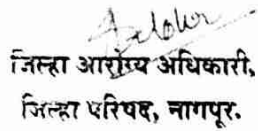 जिल्हा आरोग्य अधिकारी,
जिल्हा परिषद, नागपूर.